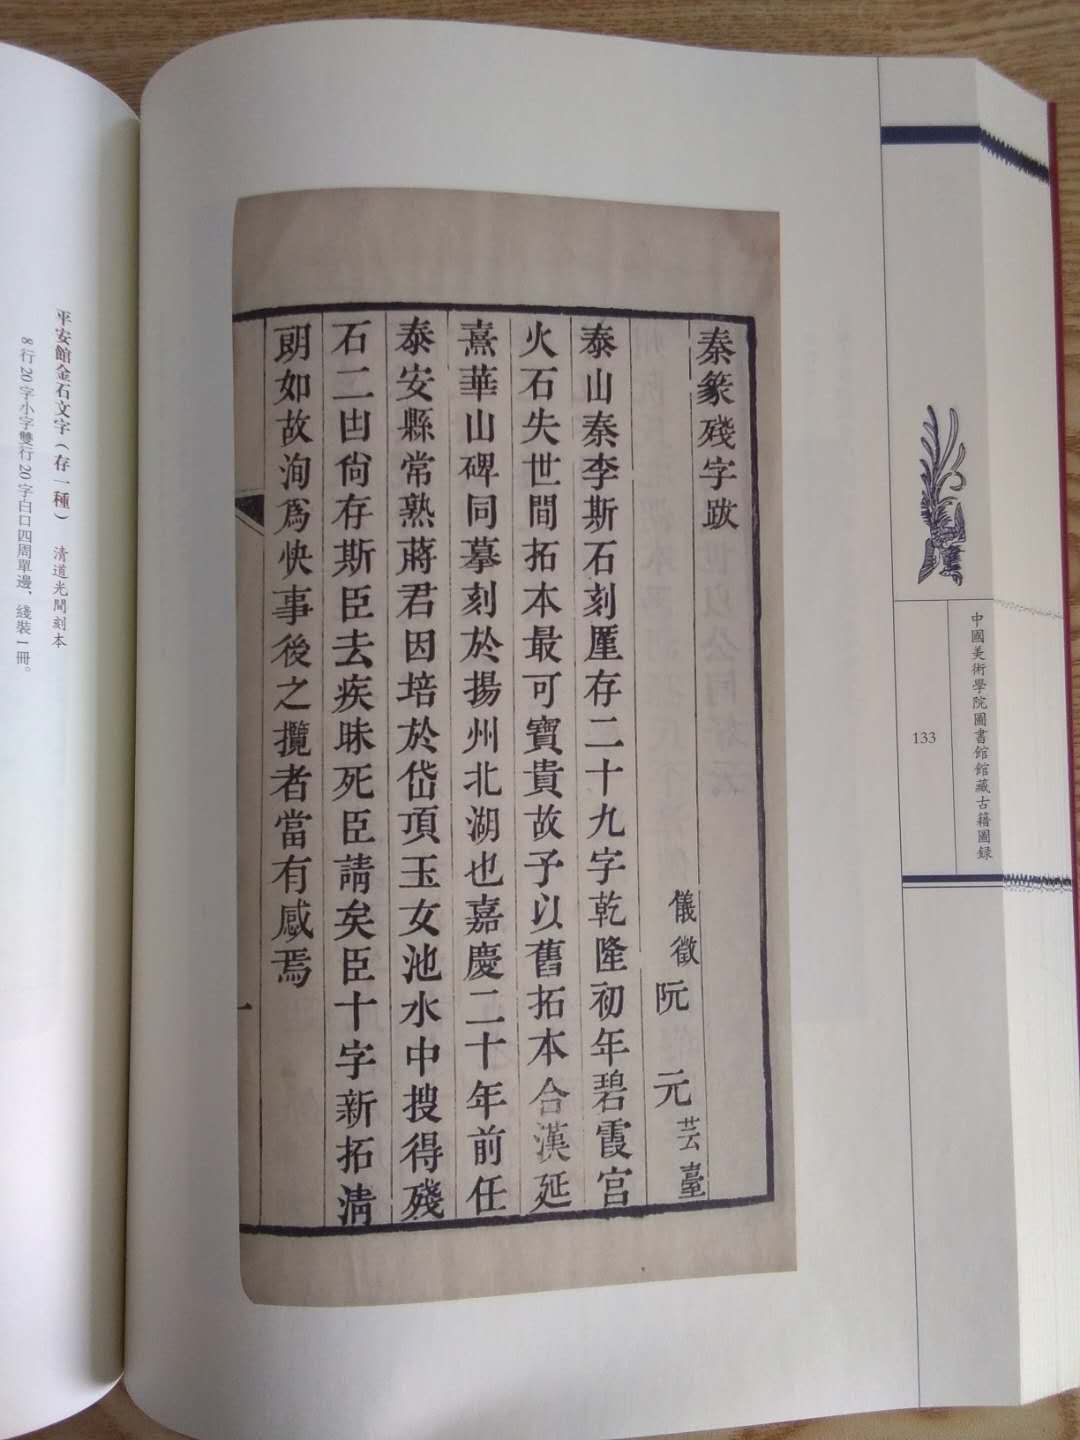 秦篆殘字跋
儀徵阮元芸臺
泰山秦李斯石刻厪存二十九字乾隆初年碧霞宫
火石失世間拓本最可寶貴故予以舊拓本合漢延
熹華山碑同摹刻於揚州北湖也嘉慶二十年前任
泰安縣常熟蔣君因培於岱頂玉女池水中搜得殘
石二凷尙存斯臣去疾昧死臣請矣臣十字新拓淸
朗如故洵爲快事後之攬者當有感焉
一
中國美術學院圖書館館藏古籍圖録
133
平安館金石文字（存一種） 清道光間刻本
8行20字小字雙行20字白口四周單邊，綫裝1冊。